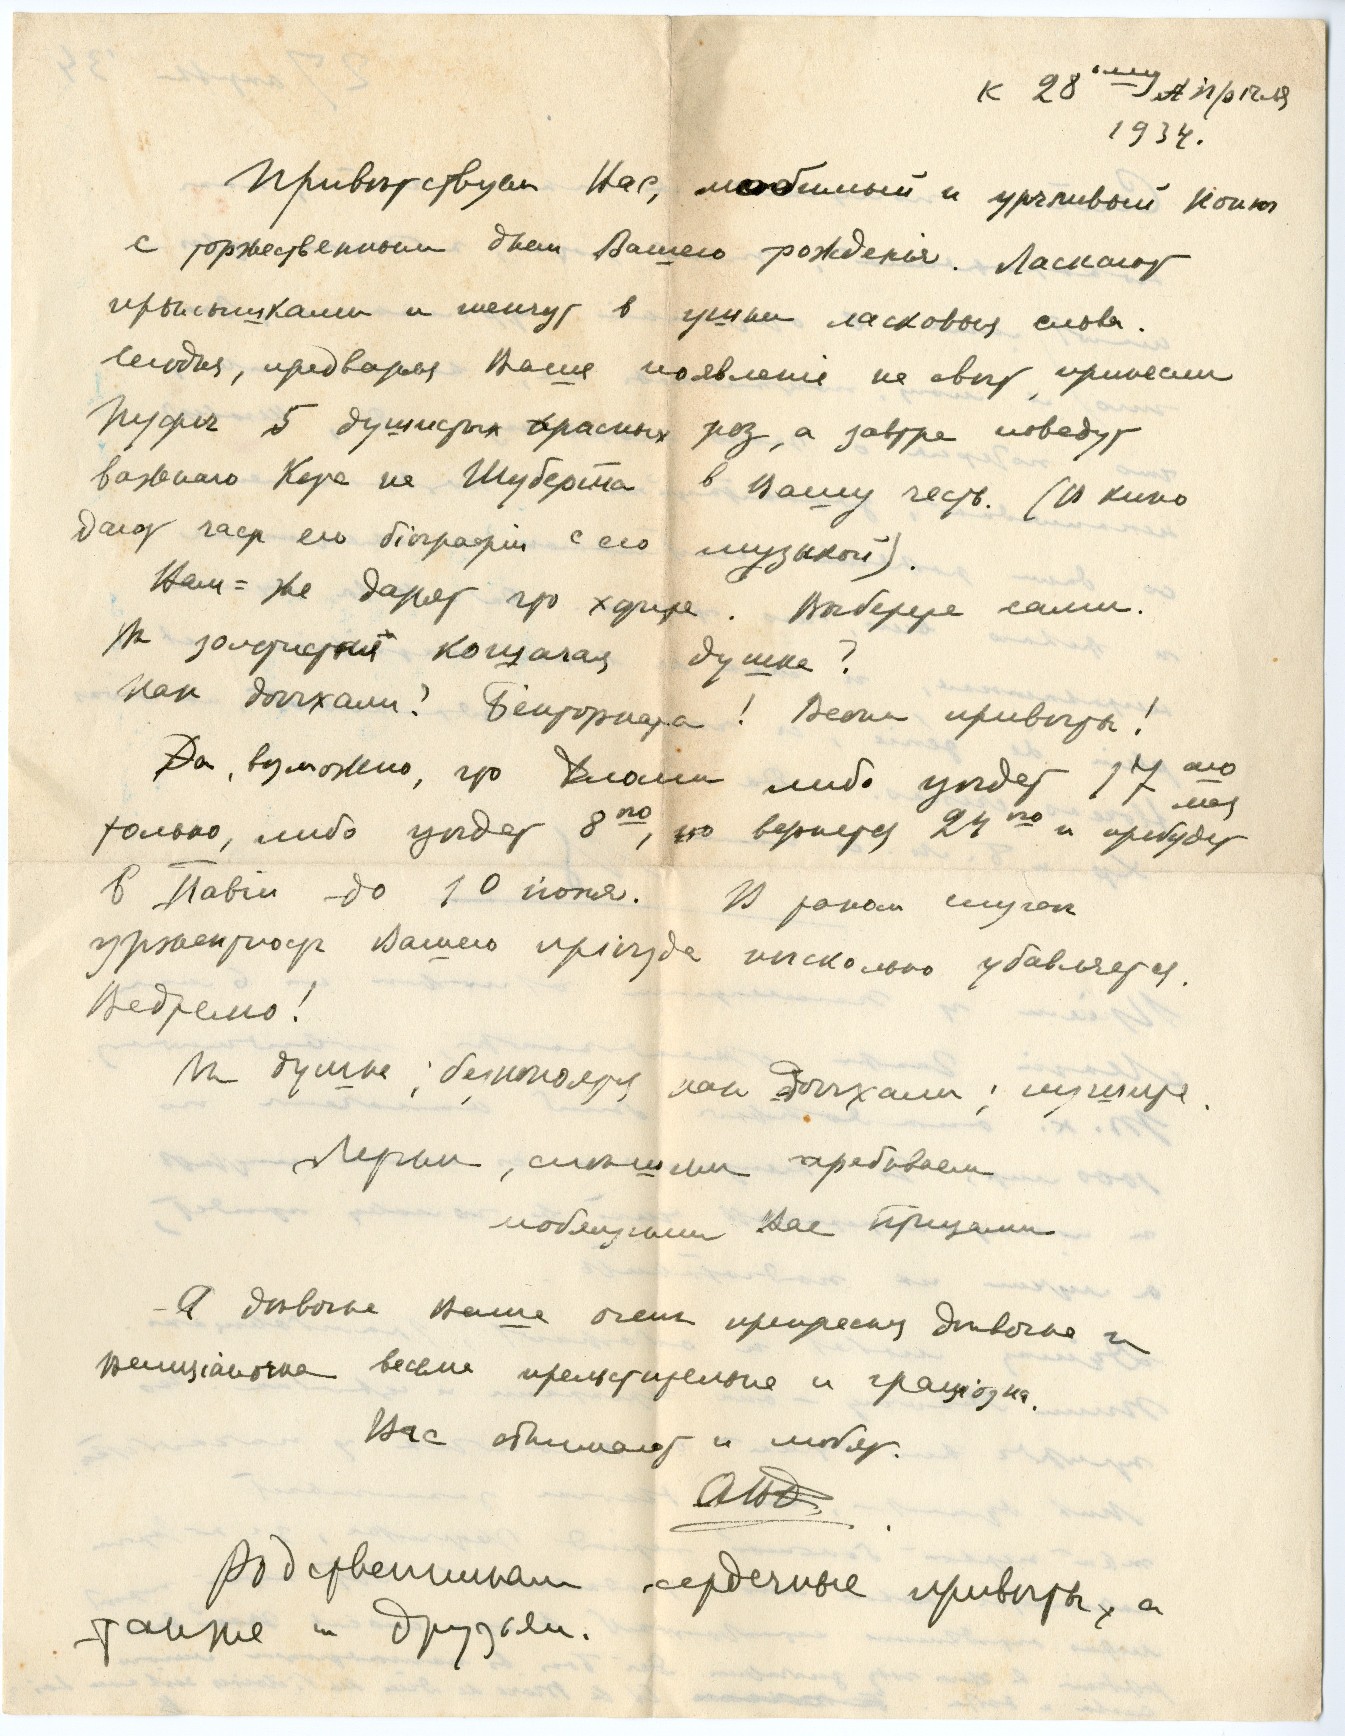 к 28ому Апрѣля
1934.
Привѣтствуем Вас, любимый и учтивый Котик
с торжественным днем Вашего рожденія. Ласкают
и шепчут в ушки ласковыя слова.
Сегодня, предваряя Ваше появленіе на свѣт, принесли
5 душистых красных роз, а завтра поведут
важнаго Кота на Шуберта в Вашу честь. (В кино
дают часть его біографіи с его музыкой).
Вам-же дарят что хотите. Выберете сами.
душка?
Как доѣхали? Бенторната! Весьма привѣты!
Да, возможно, что либо уѣдет 17го мая
только, либо уѣдет 8го, но вернется 24го и пребудет
в Павіи до 10 іюня. В таком случаѣ
уржентность Вашего пріѣзда нѣсколько убавляется.
Ведремо!
душка; безпокоятся как доѣхали; пишите.
пребываем
любящими Вас Птицами
А дѣвочка Ваша очень прекрасная дѣвочка и
Венеціаночка весьма прельстительна и граціозна.
Вас обнимают и любят.
Родственникам сердечные привѣты, а
также и друзьям.